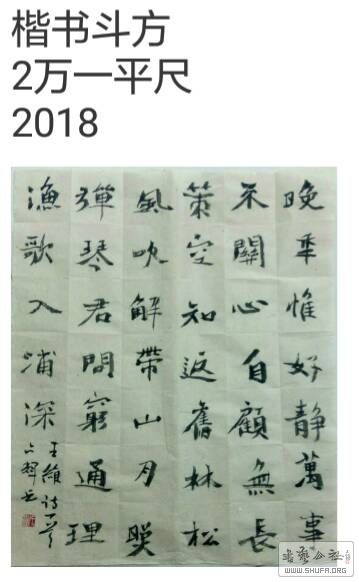 楷书斗方
2万一平尺
2018
晚秊惟好靜萬事
不關心自顧無長
策空知返舊林松
風吹解帶山月
彈琴君問窮通理
漁歌入浦深
王維詩一首
书法公社
WWW.SHUFA.ORG